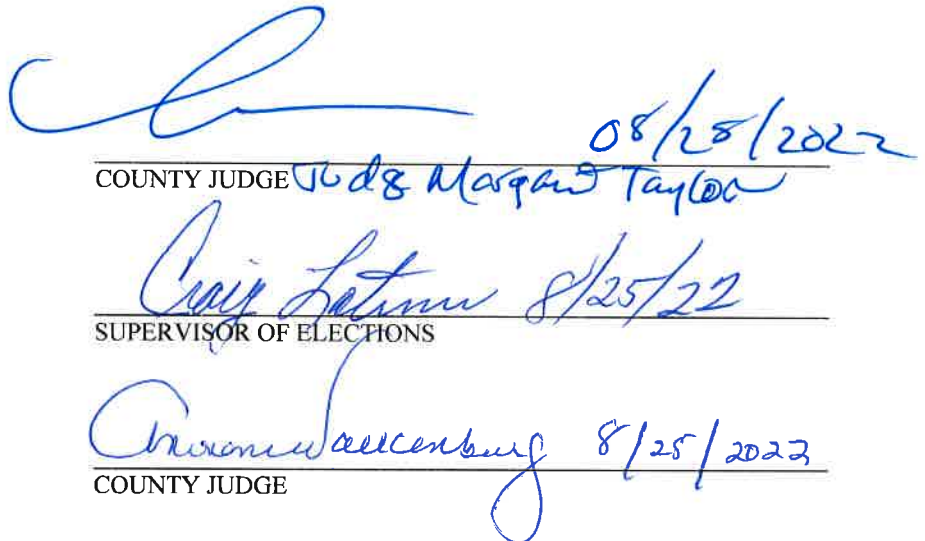 08/28/2022
COUNTY JUDGE Judg Margaret Taylor
Craig Latimer 8/25/22
SUPERVISOR OF ELECTIONS
8/25/2022
COUNTY JUDGE